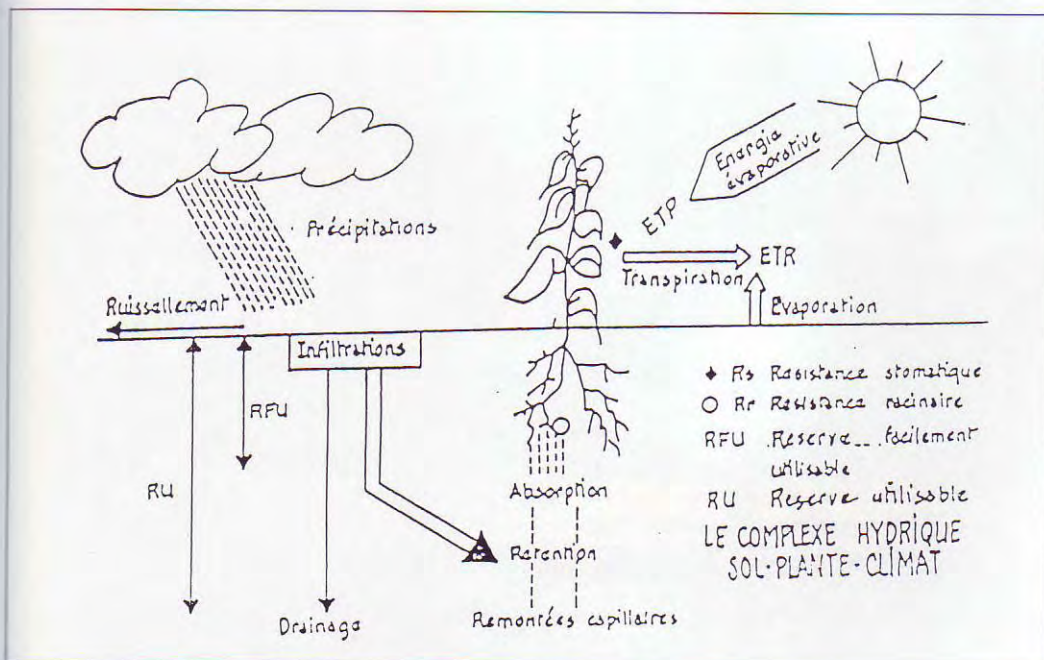 Précipitations
Energie
évaporative
ETP
ETR
Transpiration
Evaporation
Ruissellement
Infiltrations
RFU
RU
Absorption
Retention
Drainage
Remontées capillaires
Rs Resistance stomatique
Rr Resistance racinaire
RFU .Reserve... facilement
utilisable
RU Reserve utilisable
LE COMPLEXE HYDRIQUE
SOL-PLANTE-CLIMAT